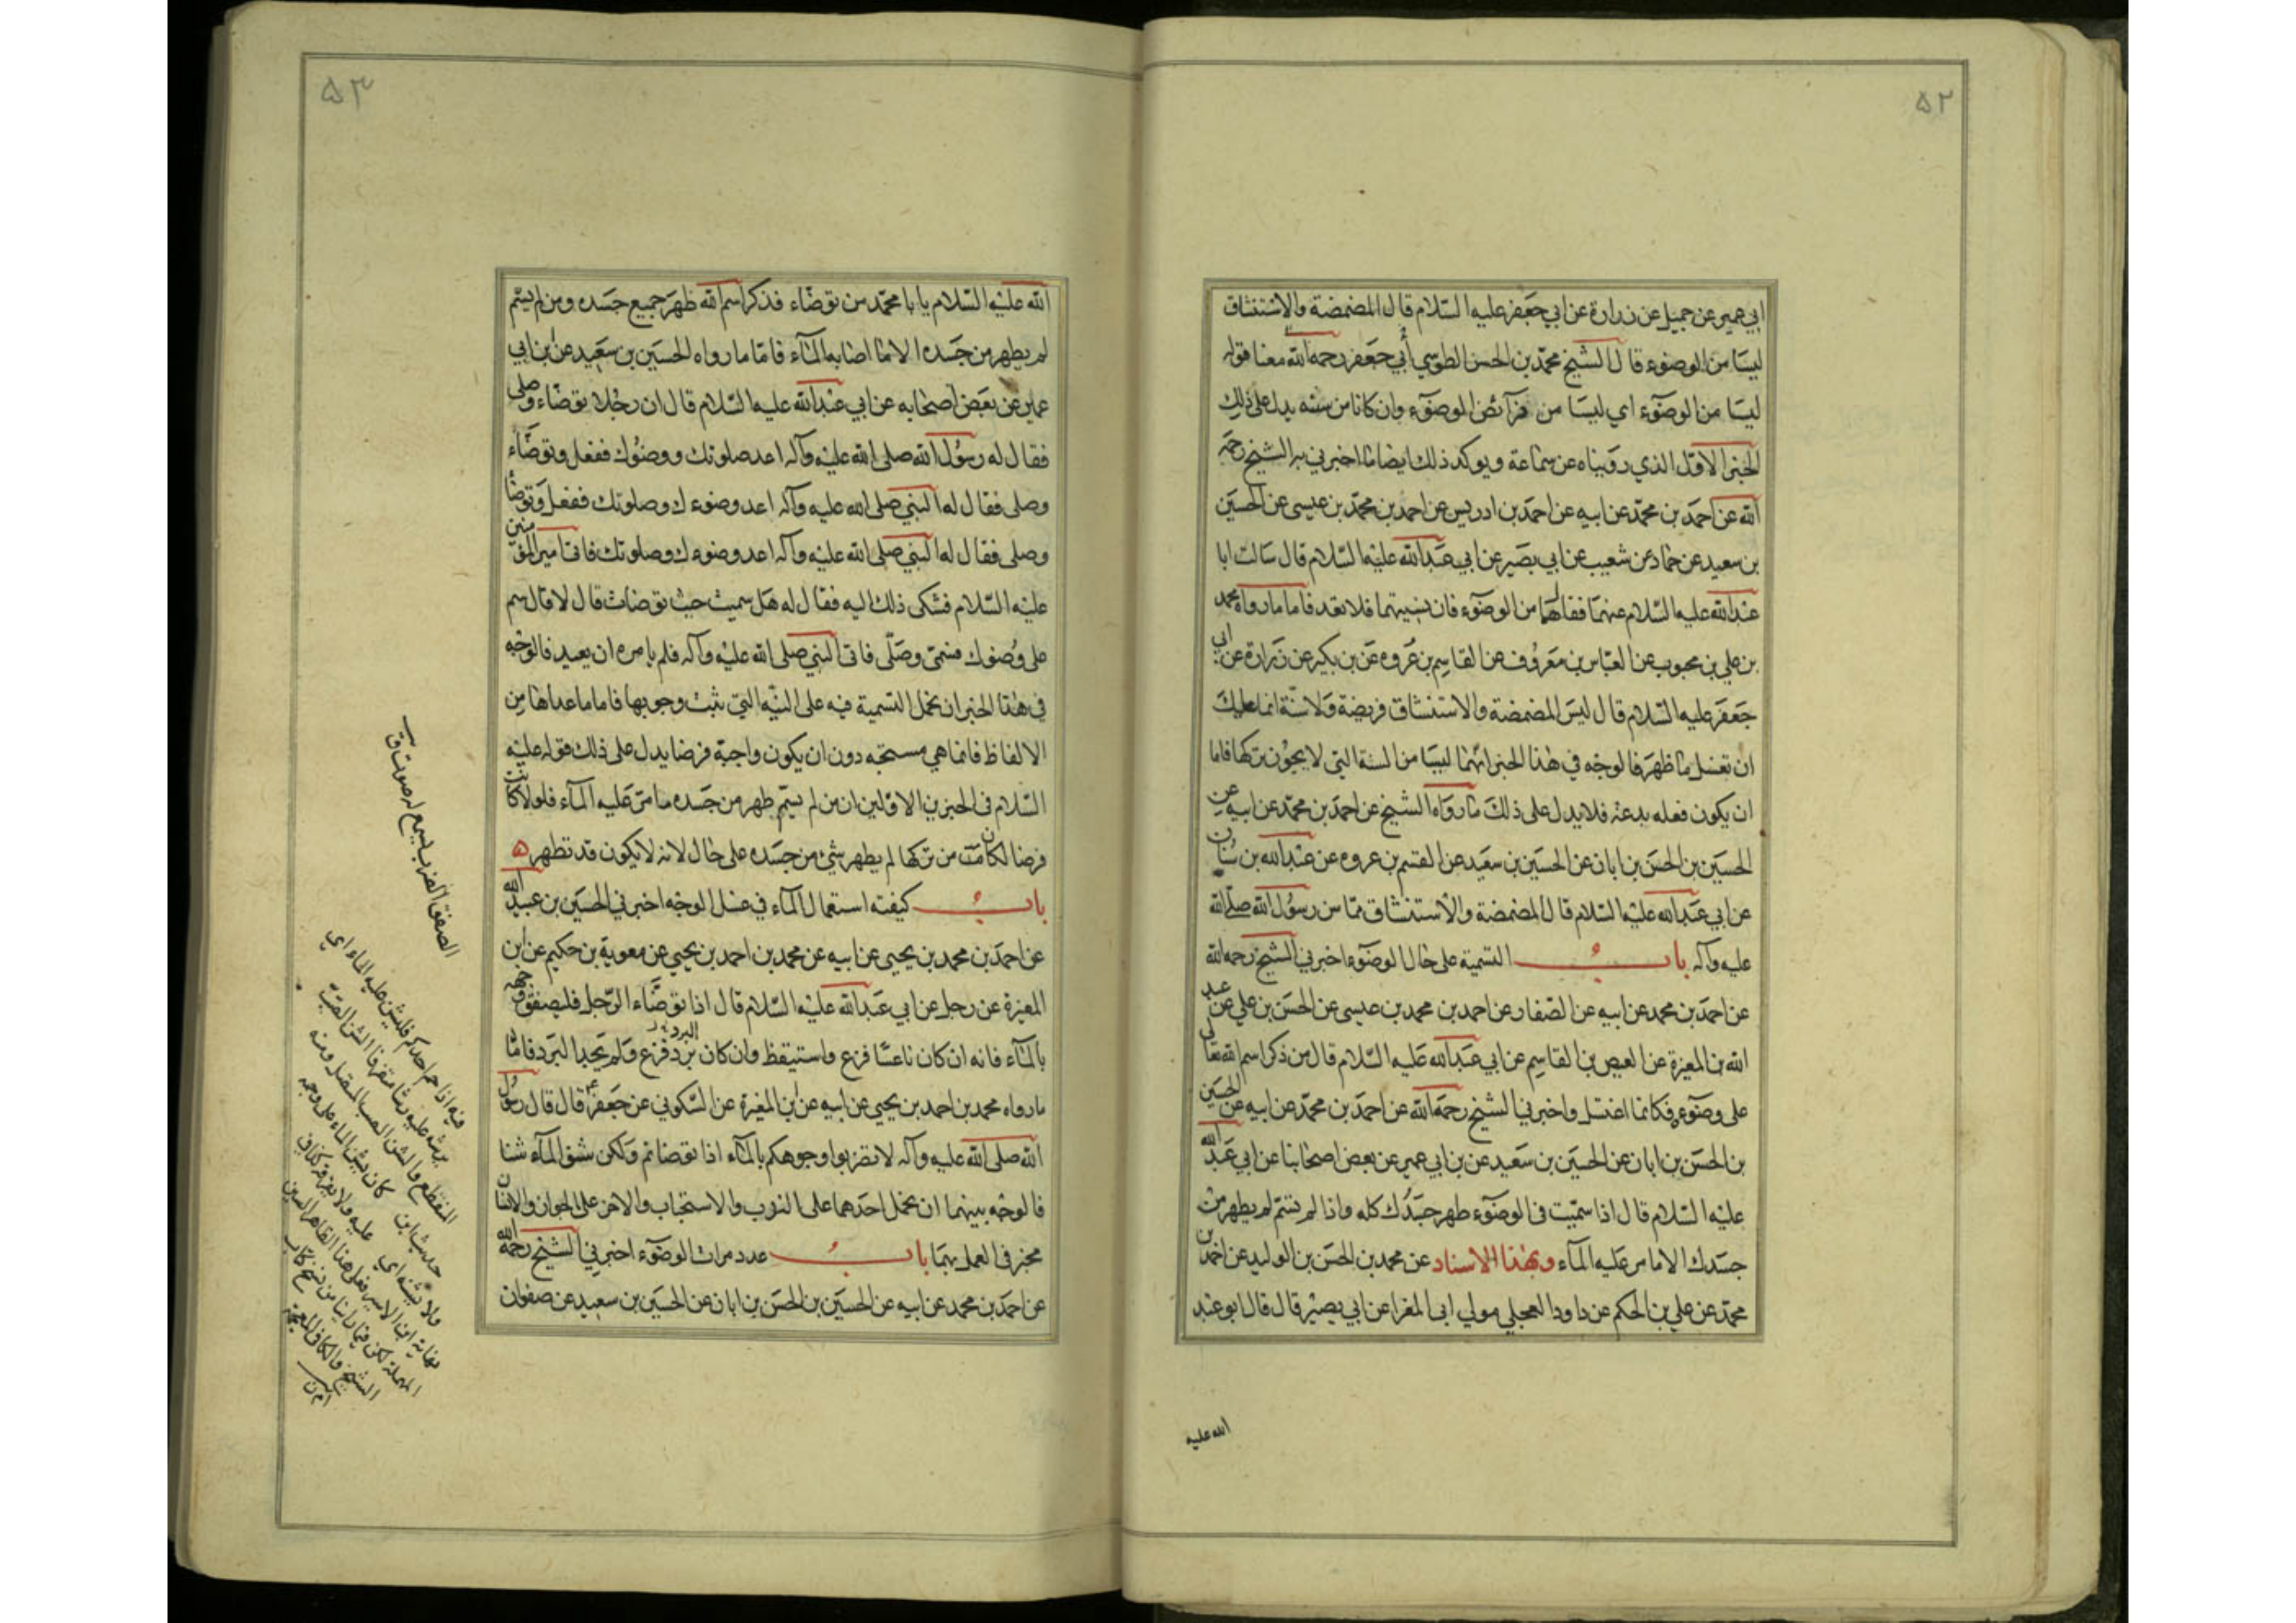 ۵۲
ابي عمير عن جميل عن زرارة عن ابي جعفر عليه السّلام قال المضمضة والاستنشاق
ليسا من الوضوء قال الشيخ محمّد بن الحسن الطوسي أبي جعفر رحمه الله معنا قوله
ليسا من الوضوء اي ليسا من فرآئض الوضوء وان كانا من سننه يدل على ذلك
الخبر الاوّل الذي رويناه عن سماعة ويوكد ذلك ايضا ما اخبرني به الشيخ رحمه
الله عن احمد بن محمّد عن ابيه عن احمد بن ادريس عن احمد بن محمّد بن عيسى عن الحسين
بن سعيد عن حماد عن شعيب عن ابي بصير عن ابي عبد الله عليه السّلام قال سالت ابا
عبد الله عليه السّلام عنهما فقال هما من الوضوء فان نسيتهما فلا تعد فاما ما رواه محمد
بن علي بن محبوب عن العبّاس بن معروف عن القاسم بن عروه عن بن بكير عن زرارة عن ابي
جعفر عليه السّلام قال ليس المضمضة والاستنشاق فريضة ولا سنّة انما عليك
ان تغسل ما ظهر فالوجه في هذا الخبر انهما ليسا من السنة التي لا يجوز تركها فاما
ان يكون فعله بدعة فلا يدل على ذلك ما رواه الشيخ عن احمد بن محمّد عن ابيه عن
الحسين بن الحسن بن ابان عن الحسين بن سعيد عن القسم بن عروه عن عبد الله بن سنان
عن ابي عبد الله عليه السّلام قال المضمضة والاستنشاق ممّا سن رسول الله صلى الله
عليه وآله باب التسمية على حال الوضوء اخبرني الشيخ رحمه الله
عن احمد بن محمد عن ابيه عن الصّفار عن احمد بن محمد بن عيسى عن الحسن بن علي عن عبد
الله بن المغيرة عن العيص بن القاسم عن ابي عبد الله عليه السّلام قال من ذكر اسم الله تعالى
على وضوءه فكانما اغتسل واخبرني الشيخ رحمه الله عن احمد بن محمّد عن ابيه عن الحسين
بن الحسن بن ابان عن الحسين بن سعيد عن بن ابي عمير عن بعض اصحابنا عن ابي عبد الله
عليه السّلام قال اذا سمّيت في الوضوء طهر جسدك كله واذا لم تسمّ لم يطهر من
جسدك الا ما مر عليه المآء وبهذا الاسناد عن محمد بن الحسن بن الوليد عن احمد بن
محمّد عن علي بن الحكم عن داود العجلي مولي ابي المغرا عن ابي بصير قال قال ابو عبد
الله عليه
۵۳
الله عليه السّلام يا با محمّد من توضّاء فذكر اسم الله طهر جميع جسده ومن لم يسّم
لم يطهر من جسده الا ما اصابه المآء فامّا ما رواه الحسين بن سعيد عن ابن ابي
عمير عن بعض اصحابه عن ابي عبد الله عليه السّلام قال ان رجلا توضّاء وصلى
فقال له رسول الله صلى الله عليه وآله اعد صلوتك ووضوك ففعل وتوضّاء
وصلى فقال له النبي صلى الله عليه وآله اعد وضوءك وصلوتك ففعل وتوضأ
وصلى فقال له النبي صلى الله عليه وآله اعد وضوءك وصلوتك فاتى امير المؤمنين
عليه السّلام فشكى ذلك اليه فقال له هل سميت حيث توضات قال لا قال سم
على وضوك فسمى وصلّى فاتى النبي صلى الله عليه وآله فلم يامره ان يعيد فالوجه
في هذا الخبر ان تحمل التسمية فيه على النيّه التي ثبت وجوبها فاما ما عداها من
الالفاظ فانما هي مستحبه دون ان يكون واجبة فرضا يدل على ذلك قوله عليه
السّلام في الخبرين الاوّلين ان من لم يسمّ طهر من جسده ما مرّ عليه المآء فلولا كانت
فرضا لكان من تركها لم يطهر شئ من جسده على حال لانه لا يكون قد تطهر ه
باب كيفته استعمال المآء في غسل الوجه اخبرني الحسين بن عبيد الله
عن احمد بن محمد بن يحيى عن ابيه عن محمد بن احمد بن يحيى عن معوية بن حكيم عن ابن
المغيرة عن رجل عن ابي عبد الله عليه السّلام قال اذا توضّاء الرّجل فليصفق وجهه
بالمآء فانه ان كان ناعسًا فزع واستيقظ وان كان برد فزع ولم يجد البرد فامّا
ما رواه محمد بن احمد بن يحيى عن ابيه عن بن المغيرة عن السّكوني عن جعفر قال قال رسول
الله صلى الله عليه وآله لا تضربوا وجوهكم بالمآء اذا توضاتم ولكن شنو المآء شنا
فالوجه بينهما ان تحمل احدهما على الندب والاستحباب والاخر على الجواز والانسان
مخير في العمل بهما باب عدد مرات الوضوء اخبرني الشيخ رحمه الله
عن احمد بن محمد عن ابيه عن الحسين بن الحسن بن ابان عن الحسين بن سعيد عن صفوان
الصفق الضرب يسمع له صوت ق
فيه اذا حم احدكم فليشن عليه الماء اي
يرشه عليه رشا متفرقا الشن الصبّ
المنقطع والسن الصب المتصل ومنه
حديث ابن كان يسن الماء على وجهه
ولا يشنه اي عليه ولا يفرقه كذا في
نهاية ابن الاثير فعلى هذا الظاهر السين
المهملة لكن فيما راينا من نسخ كتاب
الشيخ والكافي المعجمة